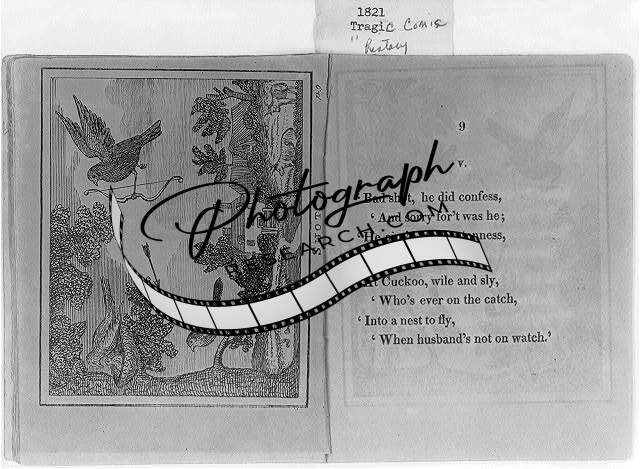 1821
Tragic Comic
"
Photograph
RESEARCH.COM
9
v.
he did confess,
‘ And sorry for't was he;
‘ He
Cuckoo, wile and sly,
‘ Who's ever on the catch,
‘ Into a nest to fly,
‘ When husband's not on watch.’